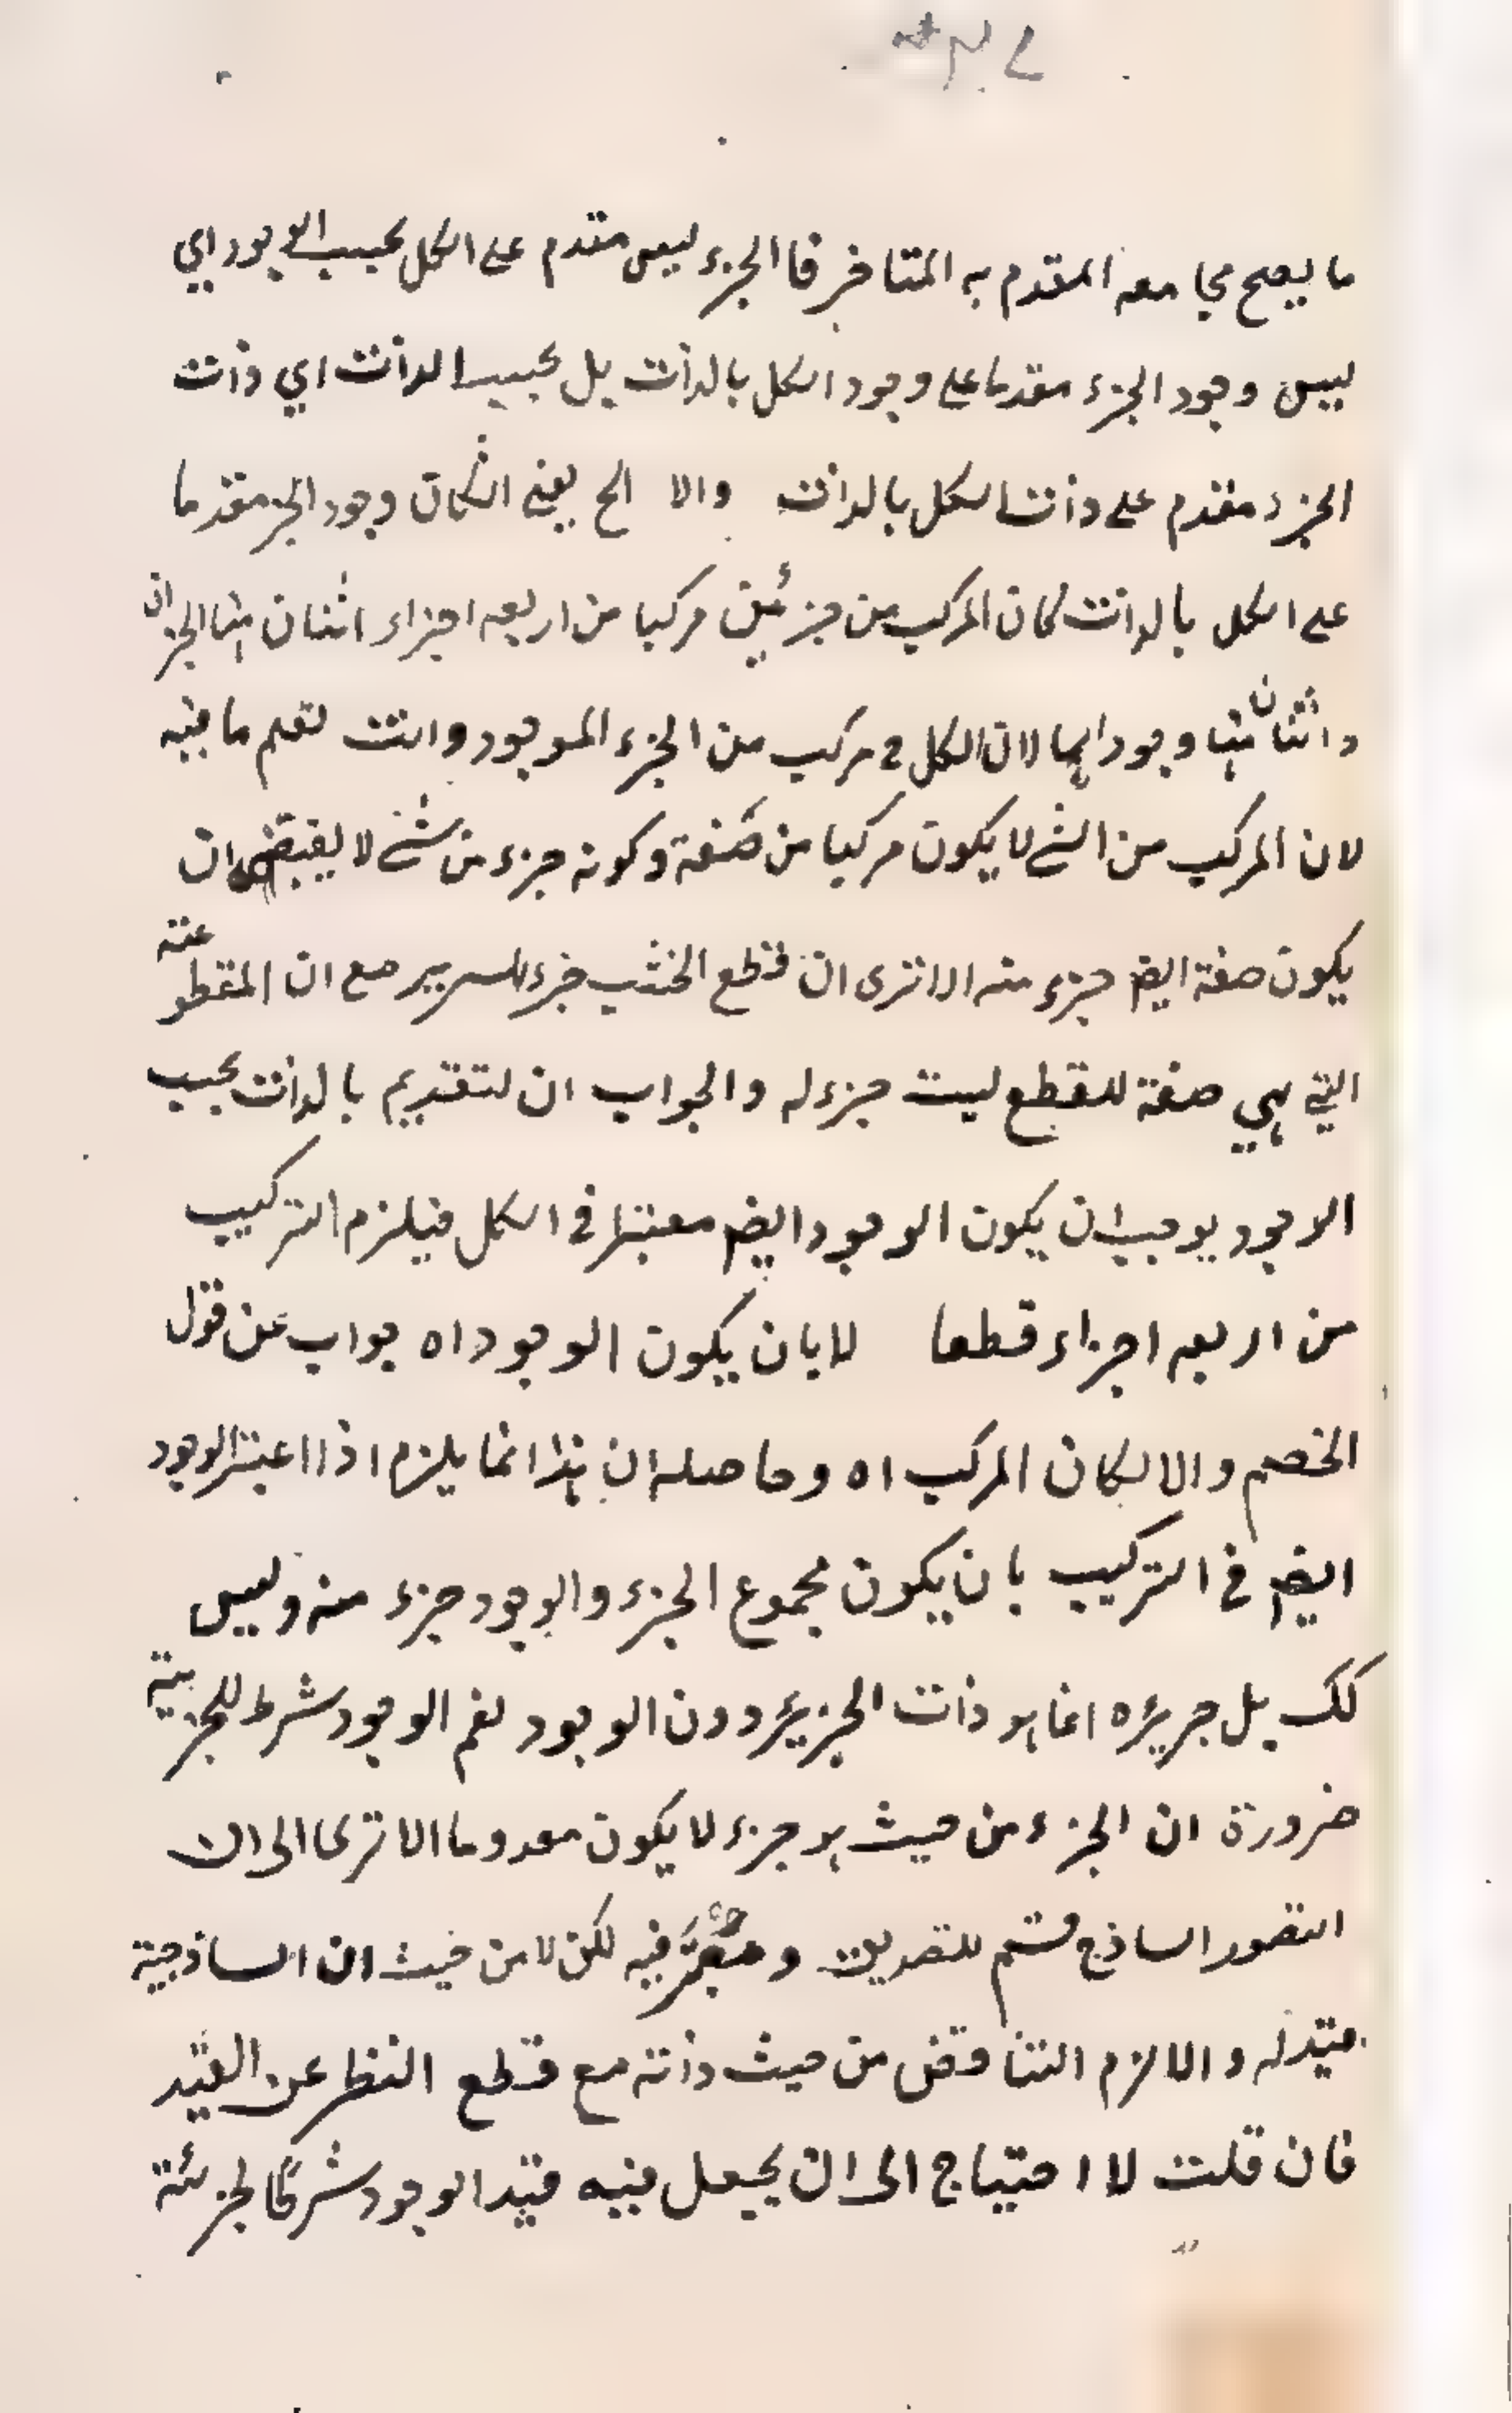 ما يصح مجامعه المقدم به المتاخر فا الجزء ليس مقدم على الكل بحسب الوجود اي
ليس وجود الجزء مقدما على وجود الكل بالذات بل بحسب الذات اي ذات
الجزء مقدم على ذات الكل بالذات والا الخ يعني ان كان وجود الجزء مقدما
على الكل بالذات كان المركب من جزئين مركبا من اربعه اجزاء اثنان منها الجزان
واثنان منها وجوداهما لان الكل ح مركب من الجزء الموجود وانت تعلم ما فيه
لان المركب من الشئ لا يكون مركبا من صفة وكونه جزء من شئ لا يقتضي ان
يكون صفة ايضم جزء منه الا ترى ان قطع الخشب جزء للسرير مع ان المقطوعته
التي هي صفة للقطع ليت جزء له والجواب ان لتقديم بالذات بحسب
الاجود يوجب ان يكون الوجود ايضم معتبرا في الكل فيلزم التركيب
من اربعه اجزاء قطعا لا بان يكون الوجود اه جواب عن قول
الخصم والا لكان المركب اه وحاصله ان هذا انما يلزم اذا اعتبر الوجود
ايضم في التركيب بان يكون مجموع الجزء والوجود جزء منه وليس
كك بل جزئه انما هو ذات الجزء دون الوجود نعم الوجود شرط للجزيية
ضرورة ان الجزء من حيث هو جزء لا يكون معدوما الا ترى الى ان
التصور الساذج قسم للتصديق ومعتبر فيه لكن لا من حيث ان الساذجية
قيد له والا لزم التناقض من حيث ذاته مع قطع النظر عن القيد
فان قلت لا احتياج الى ان يجعل فيه قيد الوجود شرطا لجزئة